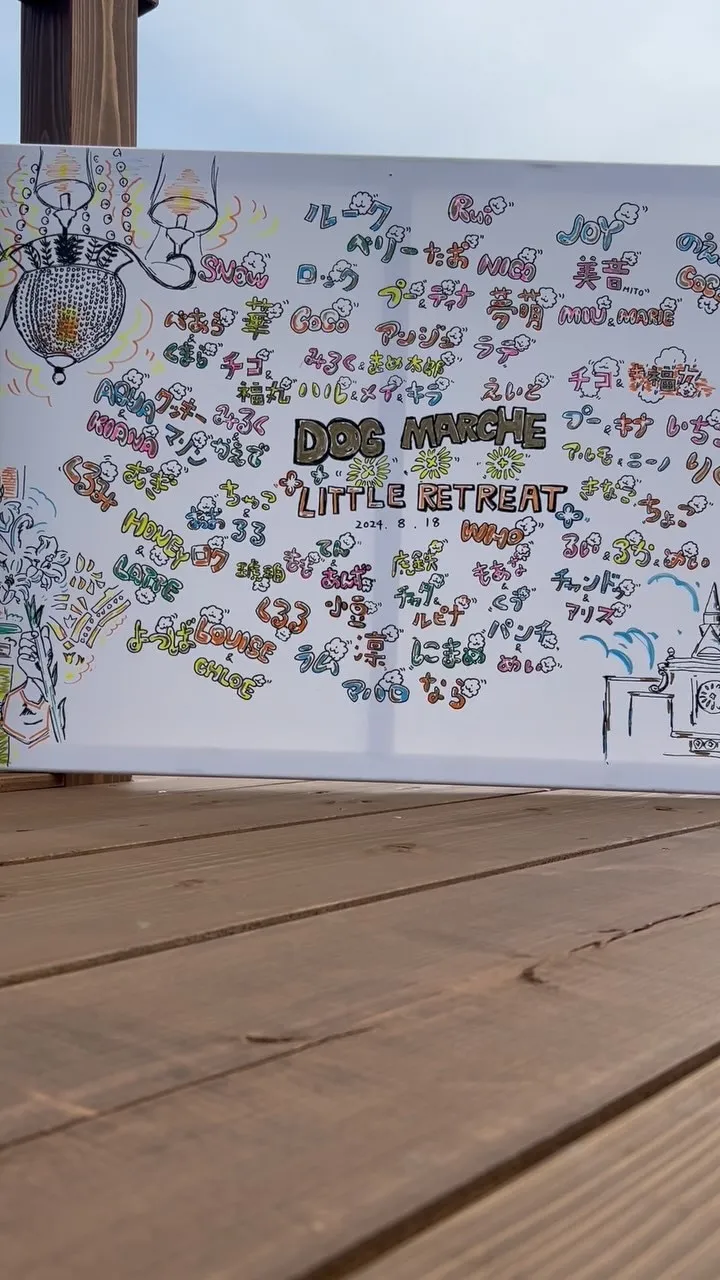 ルーク
Rui
JOY
ベリー
たお
NICO
美音
MITO
SNOW
ロック
プー&ティナ
夢萌
MOU & MARIE
べあら
華
COCO
アンジュ
ラテ
くまら
チコ
みるく&まめ太郎
チコ&
福丸
ハル&メイ&キラ
えいと
AQUA
&
KIANA
クッキー
みるく
マロン
かえで
DOG MARCHE
プー&キナ
アルモ&ニーノ
くるみ
むぎ
ちゃこ
&
るる
LITTLE RETREAT
2024.8.18
きなこ
ちょこ
HONEY
&
LATTE
ロク
琥珀
てん
もも
あんず
WHO
もあな
るい&るか&めい
チャンドラ
&
アリズ
くるる
小豆
ルピナ
くう
よつば
LOUISE
&
CHLOE
ラム
凛
にまめ
パンチ
&
めい
マハロ
なら